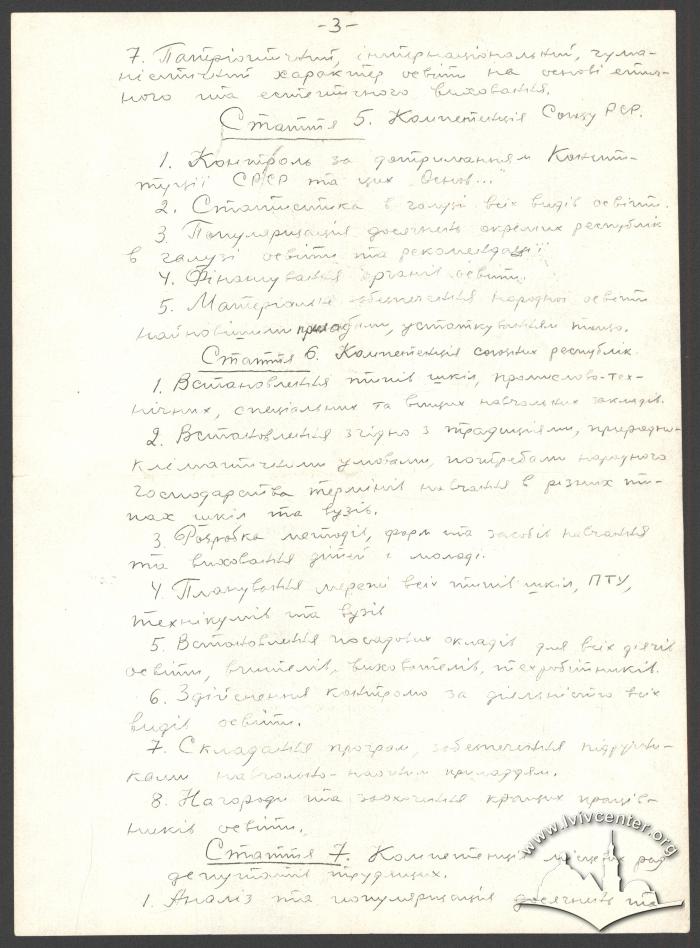 -3-
7. Патріотичний, інтернаціональний, гума-
ністичний характер освіти на основі етич-
ного та естетичного виховання.
Стаття 5. Компетенція Союзу РСР.
1. Контроль за дотриманням Консти-
туції СРСР та цих "Основ..."
2. Статистика в галузі всіх видів освіти.
3. Популяризація досягнень окремих республік
в галузі освіти та рекомендації
4. Фінансування органів освіти.
5. Матеріальне забезпечення народної освіти
найновішими приладами, устаткуванням тощо.
Стаття 6. Компетенція союзних республік.
1. Встановлення типів шкіл, промислово-тех-
нічних, спеціальних та вищих навчальних закладів.
2. Встановлення згідно з традиціями, природно-
кліматичними умовами, потребами народного
господарства термінів навчання в різних ти-
пах шкіл та вузів.
3. Розробка методів, форм та засобів навчання
та виховання дітей і молоді.
4. Планування мережі всіх типів шкіл, ПТУ,
технікумів та вузів
5. Встановлення посадових окладів для всіх діячів
освіти, вчителів, вихователів, техробітників.
6. Здійснення контролю за діяльністю всіх
видів освіти.
7. Складання програм, забезпечення підручни-
ками навчально-наочним приладдям.
8. Нагороди та заохочення кращих праців-
ників освіти.
Стаття 7. Компетенція місцевих рад
депутатів трудящих.
1. Аналіз та популяризація досягнень та
www.lvivcenter.org